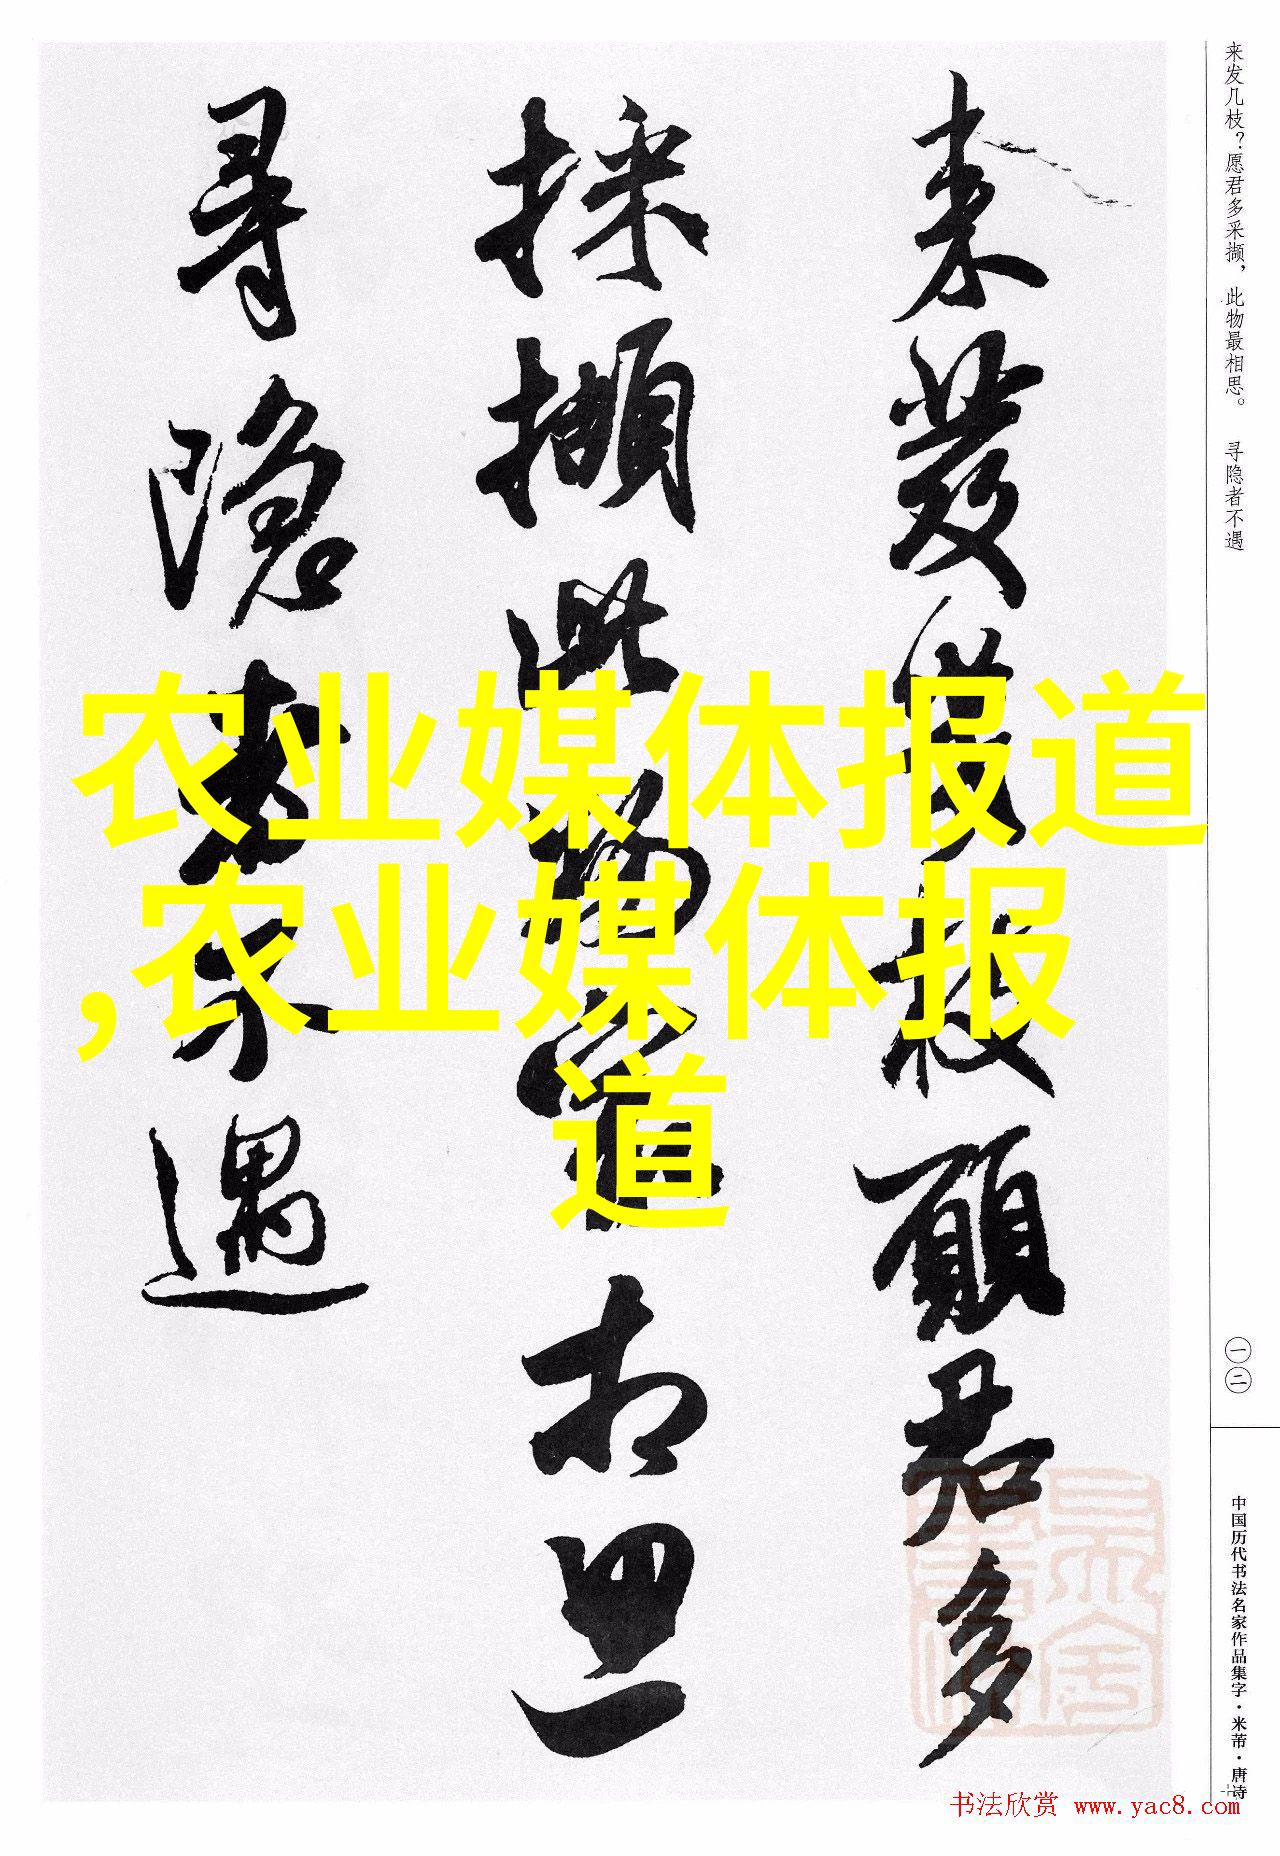 来发几枝？愿君多采撷，此物最相思。 寻隐者不遇
來發幾枝願君多
採擷此物最相思
尋隱者不遇
农业媒体报道
,农业媒体报
道
一二
中国历代书法名家作品集字·米芾·唐诗
书法欣赏 www.yac8.com